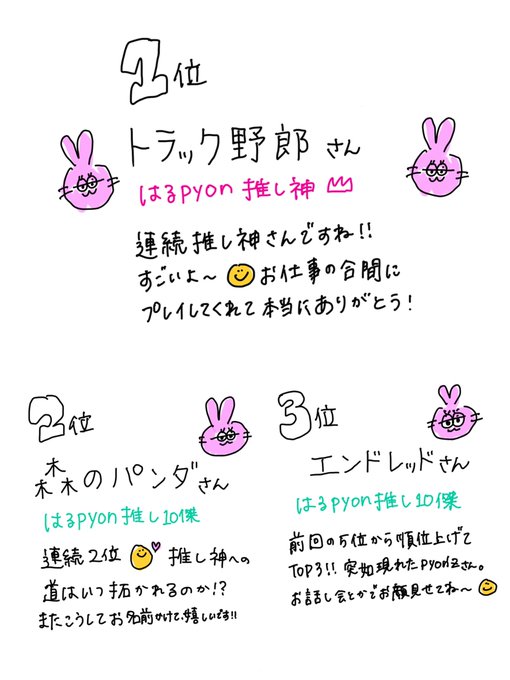 1位
トラック野郎さん
はるpyon推し神
連続推し神さんですね!!
すごいよ〜 お仕事の合間に
プレイしてくれて本当にありがとう!
2位
森のパンダさん
はるpyon推し10傑
連続2位 推し神への
道はいつ拓かれるのか!?
またこうしてお名前かけて、嬉しいです!!
3位
エンドレッドさん
はるpyon推し10傑
前回の5位から順位上げて
TOP3!! 突如現れたpyonzさん。
お話し会とかでお顔見せてね〜